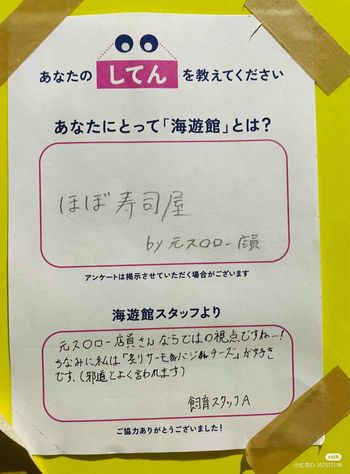 あなたの してん を教えてください
あなたにとって「海遊館」とは？
ほぼ寿司屋
by 元スロロー店員
アンケートは掲示させていただく場合がございます
海遊館スタッフより
元スロロー店員さんならではの視点ですね…！
ちなみに私は「炙りサーモンバジルチーズ」が好き
です。(邪道とよく言われます)
飼育スタッフA
ご協力ありがとうございました！
小红书
小红书ID: 352077196